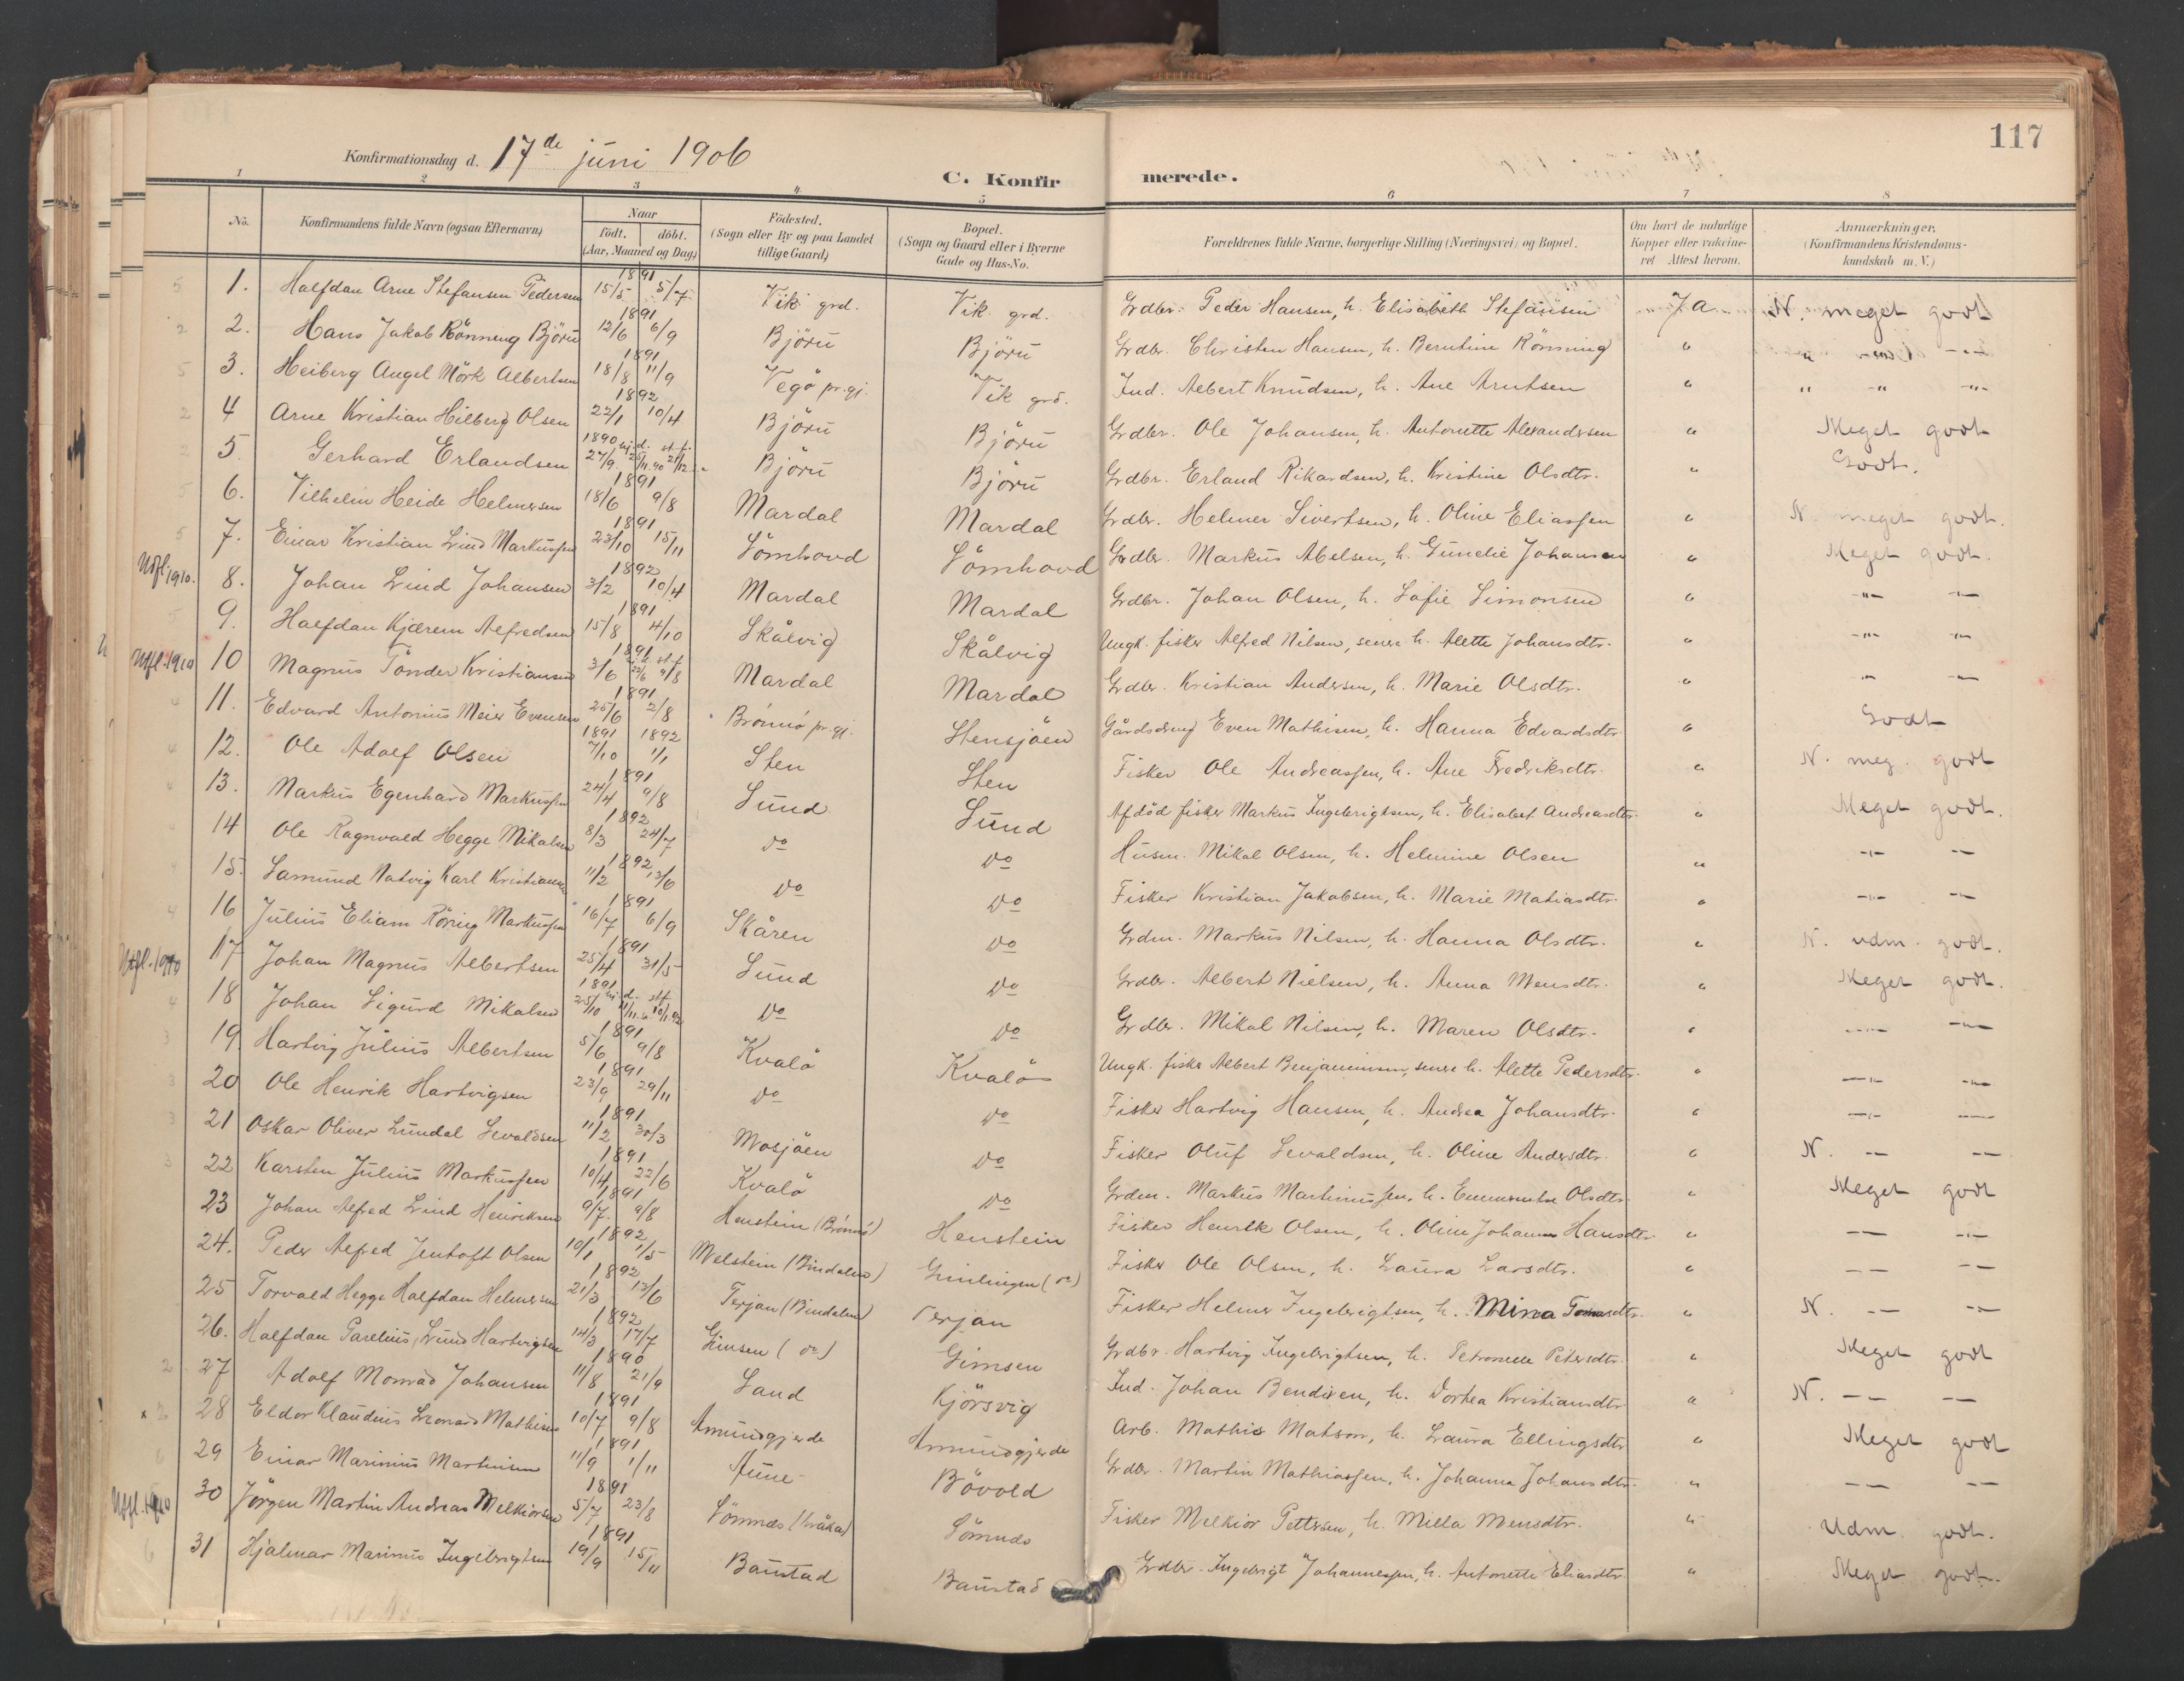 117
Konfirmationsdag d. 17de juni 1906
C. Konfirmerede.
1 2 3 4 5 6 7 8
No. Konfirmandens fulde Navn (ogsaa Efternavn) Naar födt. döbt. (Aar, Maaned og Dag) Födested. (Sogn eller By og paa Landet tillige Gaard) Bopæl. (Sogn og Gaard eller i Byerne Gade og Hus-No. Forældrenes fulde Navne, borgerlige Stilling (Næringsvei) og Bopæl. Om havt de naturlige Kopper eller vakcineret Attest herom. Anmærkninger. (Konfirmandens Kristendomskundskab m. V.)
1. Halfdan Arne Stefansen Pedersen 1891 15/5 5/7 Vik grd. Vik grd. Grdbr. Peder Hansen, h. Elisabeth Stefansen Ja N. meget godt
2. Hans Jakob Rönning Björu 1891 12/6 6/9 Björu Björu Grdbr. Christen Hansen, h. Berntine Rönning " "
3. Heiberg Angel Mörk Albertsen 1891 18/8 11/9 Vegö pr.gj. Vik grd. Ind. Albert Knudsen, h. Ane Arntsen " " " "
4 Arne Kristian Hilberg Olsen 1892 22/1 10/4 Björu Björu Grdbr. Ole Johansen, h. Antonette Alexandersen " Meget godt
5. Gerhard Erlandsen 1890 27/9 Björu Björu Grdbr. Erland Rikardsen, h. Kristine Olsdtr. " Godt.
6. Vilhelm Heide Helmersen 1891 18/6 9/8 Mardal Mardal Grdbr. Helmer Sivertsen, h. Oline Eliassen " N. meget godt.
7. Einar Kristian Lind Markussen 1891 23/10 15/11 Sömhovd Sömhovd Grdbr. Markus Abelsen, h. Gunelie Johansen " Meget godt.
Utfl. 1910. 8. Johan Lind Johansen 1892 3/2 10/4 Mardal Mardal Grdbr. Johan Olsen, h. Sofie Simonsen " " "
9. Halfdan Kjærem Alfredsen 1891 15/8 4/10 Skålvig Skålvig Ungk. fisker Alfred Nilsen, senere h. Alette Johansdtr. " " "
Utfl. 1910 10 Magnus Tonder Kristiansen 1891 3/6 Mardal Mardal Grdbr. Kristian Andersen, h. Marie Olsdtr. " " "
11. Edvard Antonius Meier Evensen 1891 25/6 2/8 Brönnö pr.gj. Stensjöen Gårdsdreng Even Mathisen, h. Hanna Edvardsdtr. " Godt
12. Ole Adolf Olsen 1891 1892 7/10 1/1 Sten Sten Fisker Ole Andreassen, h. Ane Fredriksdtr. " N. meg. godt
13. Markus Egenhard Markussen 1891 24/4 9/8 Sund Sund Afdöd fisker Markus Ingebrigtsen, h. Elisabet Andreasdtr. " Meget godt.
14 Ole Ragnvald Hegge Mikalsen 1892 8/3 24/7 do do Husm. Mikal Olsen, h. Helmine Olsen " " "
15. Samund Natvig Karl Kristiansen 1892 11/2 13/6 do do Fisker Kristian Jakobsen, h. Marie Matiasdtr. " " "
16 Julius Eliam Rönig Markussen 1891 16/7 6/9 Skåren do Grdm. Markus Nilsen, h. Hanna Olsdtr. " N. udm. godt.
Utfl. 1910 17 Johan Magnus Albertsen 1891 25/4 31/5 Sund do Grdbr. Albert Nielsen, h. Anna Mensdtr. " Meget godt.
18 Johan Sigurd Mikalsen 1891 25/10 do do Grdbr. Mikal Nilsen, h. Maren Olsdtr. " " "
19. Hartvig Julius Albertsen 1891 5/6 9/8 Kvalö Kvalö Ungk. fisker Albert Benjaminsen, senere h. Alette Pedersdtr. " " "
20 Ole Henrik Hartvigsen 1891 23/9 29/11 do do Fisker Hartvig Hansen, h. Andrea Johansdtr. " " "
21 Oskar Oliver Lundal Sevaldsen 1891 11/2 30/3 Mosjöen do Fisker Oluf Sevaldsen, h. Oline Andersdtr. " N. " "
22 Karsten Julius Markussen 1891 10/4 22/6 Kvalö do Grdm. Markus Martinussen, h. Olsdtr. " Meget godt
23 Johan Alfred Lind Henriksen 1891 9/7. 9/8 Henstein (Brönnö) Henstein Fisker Henrik Olsen, h. Oline Johanna Hansdtr. " " "
24. Peder Alfred Jentoft Olsen 1892 10/1 1/5 Melstein (Bindalen) (do) Fisker Ole Olsen, h. Laura Larsdtr. " " "
25 Torvald Hegge Halfdan Helmersen 1892 21/3 13/6 Terjan (Bindalen) Terjan Fisker Helmer Ingebrigtsen, h. Mina " N. " "
26. Halfdan Parelius Lund Hartvigsen 1892 14/3 17/7 Gimsen (do) Gimsen Grdbr. Hartvig Ingebrigtsen, h. Petronelle Petersdtr. " Meget godt
27 Adolf Monrad Johansen 1890 11/8 21/9 Sand Kjörsvig Ind. Johan Bendixen, h. Dortea Kristiansdtr. " N. " "
x 28 Eldor Klaudius Leonard Mathisen 1891 10/7 9/8 Amundgjerde Amundgjerde Arb. Mathis Matson, h. Laura Ellingsdtr. " Meget godt
29 Einar Marinius Martinsen 1891 11/9 1/11 Aune Bövold Grdbr. Martin Mathiassen, h. Johanna Johansdtr. " " "
Utfl. 1910 30 Jörgen Martin Andreas Melkiorsen 1891 5/7 23/8 Sömnes (Kråka) Sömnes Fisker Melkior Pettersen, h. Milla Mensdtr. " Udm. godt.
31 Hjalmar Marinus Ingebrigtsen 1891 19/9 15/11 Baustad Baustad Grdbr. Ingebrigt Johannessen, h. Antonette Eliasdtr. " Meget godt.